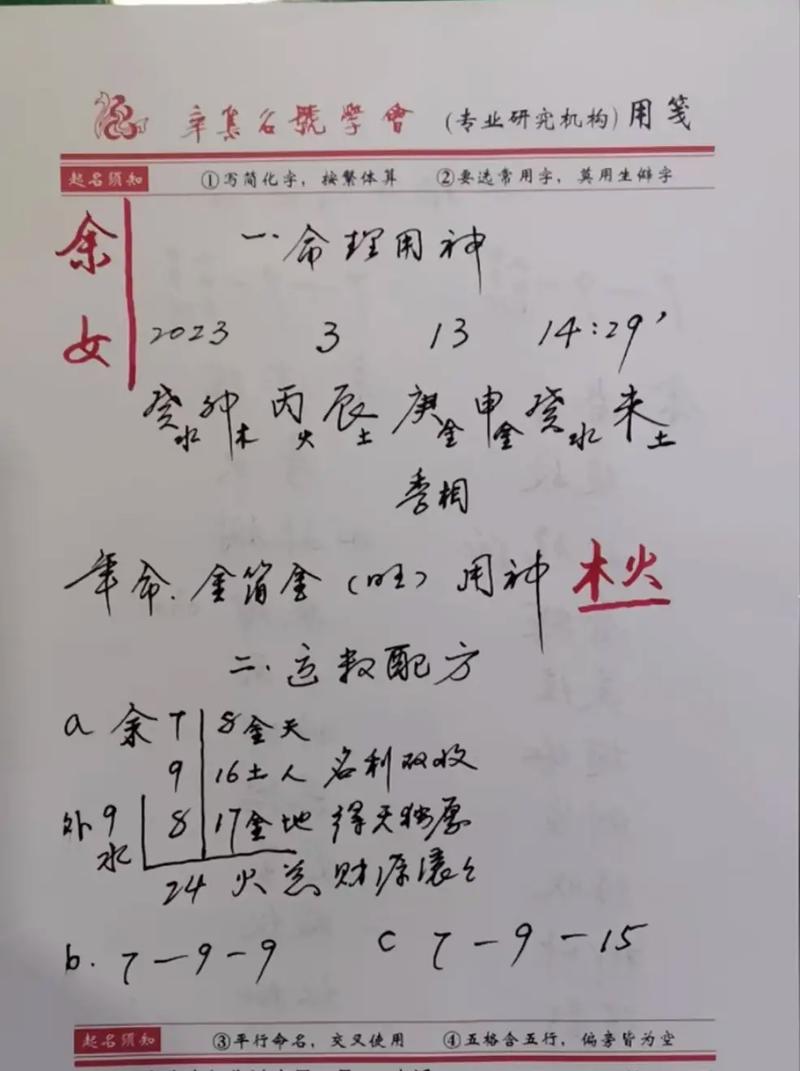 辛集名號學會 (专业研究机构) 用笺
起名须知 ①写简化字，按繁体算 ②要选常用字，莫用生僻字
余女
一.命理用神
2023 3 13 14:29'
癸水卯木丙火辰土庚金申金癸水未土
秀相
年命.金箔金(旺) 用神 木火
二.运数配方
a 余 7 8金天
9 16土人 名利双收
外9水 8 17金地 得天独厚
24 火总 财源滚滚
b. 7-9-9 c 7-9-15
起名须知 ③平行命名，交叉使用 ④五格含五行，偏旁皆为空